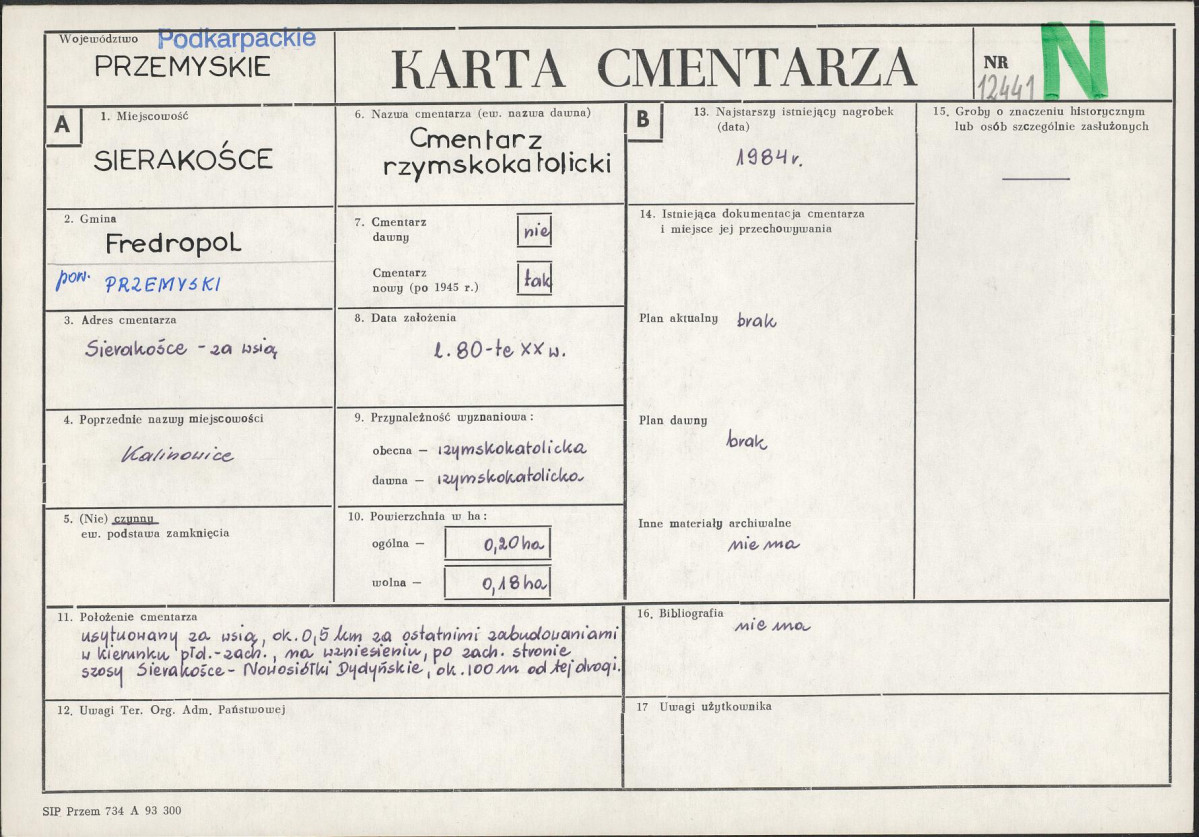 Województwo Podkarpackie
PRZEMYSKIE
KARTA CMENTARZA
NR
12441
N
A
1. Miejscowość
SIERAKOŚCE
2. Gmina
Fredropol
pow. PRZEMYSKI
3. Adres cmentarza
Sierakośce - za wsią
4. Poprzednie nazwy miejscowości
Kalinowice
5. (Nie) czynny
ew. podstawa zamknięcia
6. Nazwa cmentarza (ew. nazwa dawna)
Cmentarz
rzymskokatolicki
7. Cmentarz
dawny
nie
Cmentarz
nowy (po 1945 r.)
tak
8. Data założenia
l. 80-te XX w.
9. Przynależność wyznaniowa:
obecna — rzymskokatolicka
dawna — rzymskokatolicka
10. Powierzchnia w ha:
ogólna — 0,20 ha
wolna — 0,18 ha
11. Położenie cmentarza
usytuowany za wsią, ok. 0,5 km za ostatnimi zabudowaniami
w kierunku płd.-zach., na wzniesieniu, po zach. stronie
szosy Sierakośce - Nowosiółki Dydyńskie, ok. 100 m od tej drogi.
12. Uwagi Ter. Org. Adm. Państwowej
B
13. Najstarszy istniejący nagrobek
(data)
1984 r.
14. Istniejąca dokumentacja cmentarza
i miejsce jej przechowywania
Plan aktualny brak
Plan dawny
brak
Inne materiały archiwalne
nie ma
15. Groby o znaczeniu historycznym
lub osób szczególnie zasłużonych
—
16. Bibliografia
nie ma
17 Uwagi użytkownika
SIP Przem 734 A 93 300